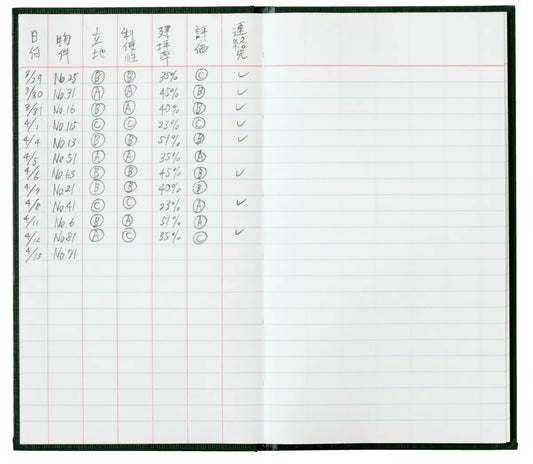 日付 物件 立地 利便性 建坪率 評価 連絡先
3/29 No.25 Ⓑ Ⓑ 35% Ⓒ ✓
3/30 No.31 Ⓐ Ⓐ 45% Ⓑ ✓
3/31 No.16 Ⓑ Ⓐ 40% Ⓑ ✓
4/1 No.15 Ⓒ Ⓒ 23% Ⓒ ✓
4/4 No.13 Ⓑ Ⓑ 51% Ⓑ ✓
4/5 No.51 Ⓐ Ⓐ 35% Ⓐ
4/6 No.63 Ⓑ Ⓑ 45% Ⓑ ✓
4/7 No.21 Ⓑ Ⓑ 40% Ⓑ
4/8 No.41 Ⓒ Ⓒ 23% Ⓐ ✓
4/11 No.6 Ⓑ Ⓐ 51% Ⓐ
4/12 No.81 Ⓐ Ⓒ 35% Ⓒ ✓
4/13 No.71